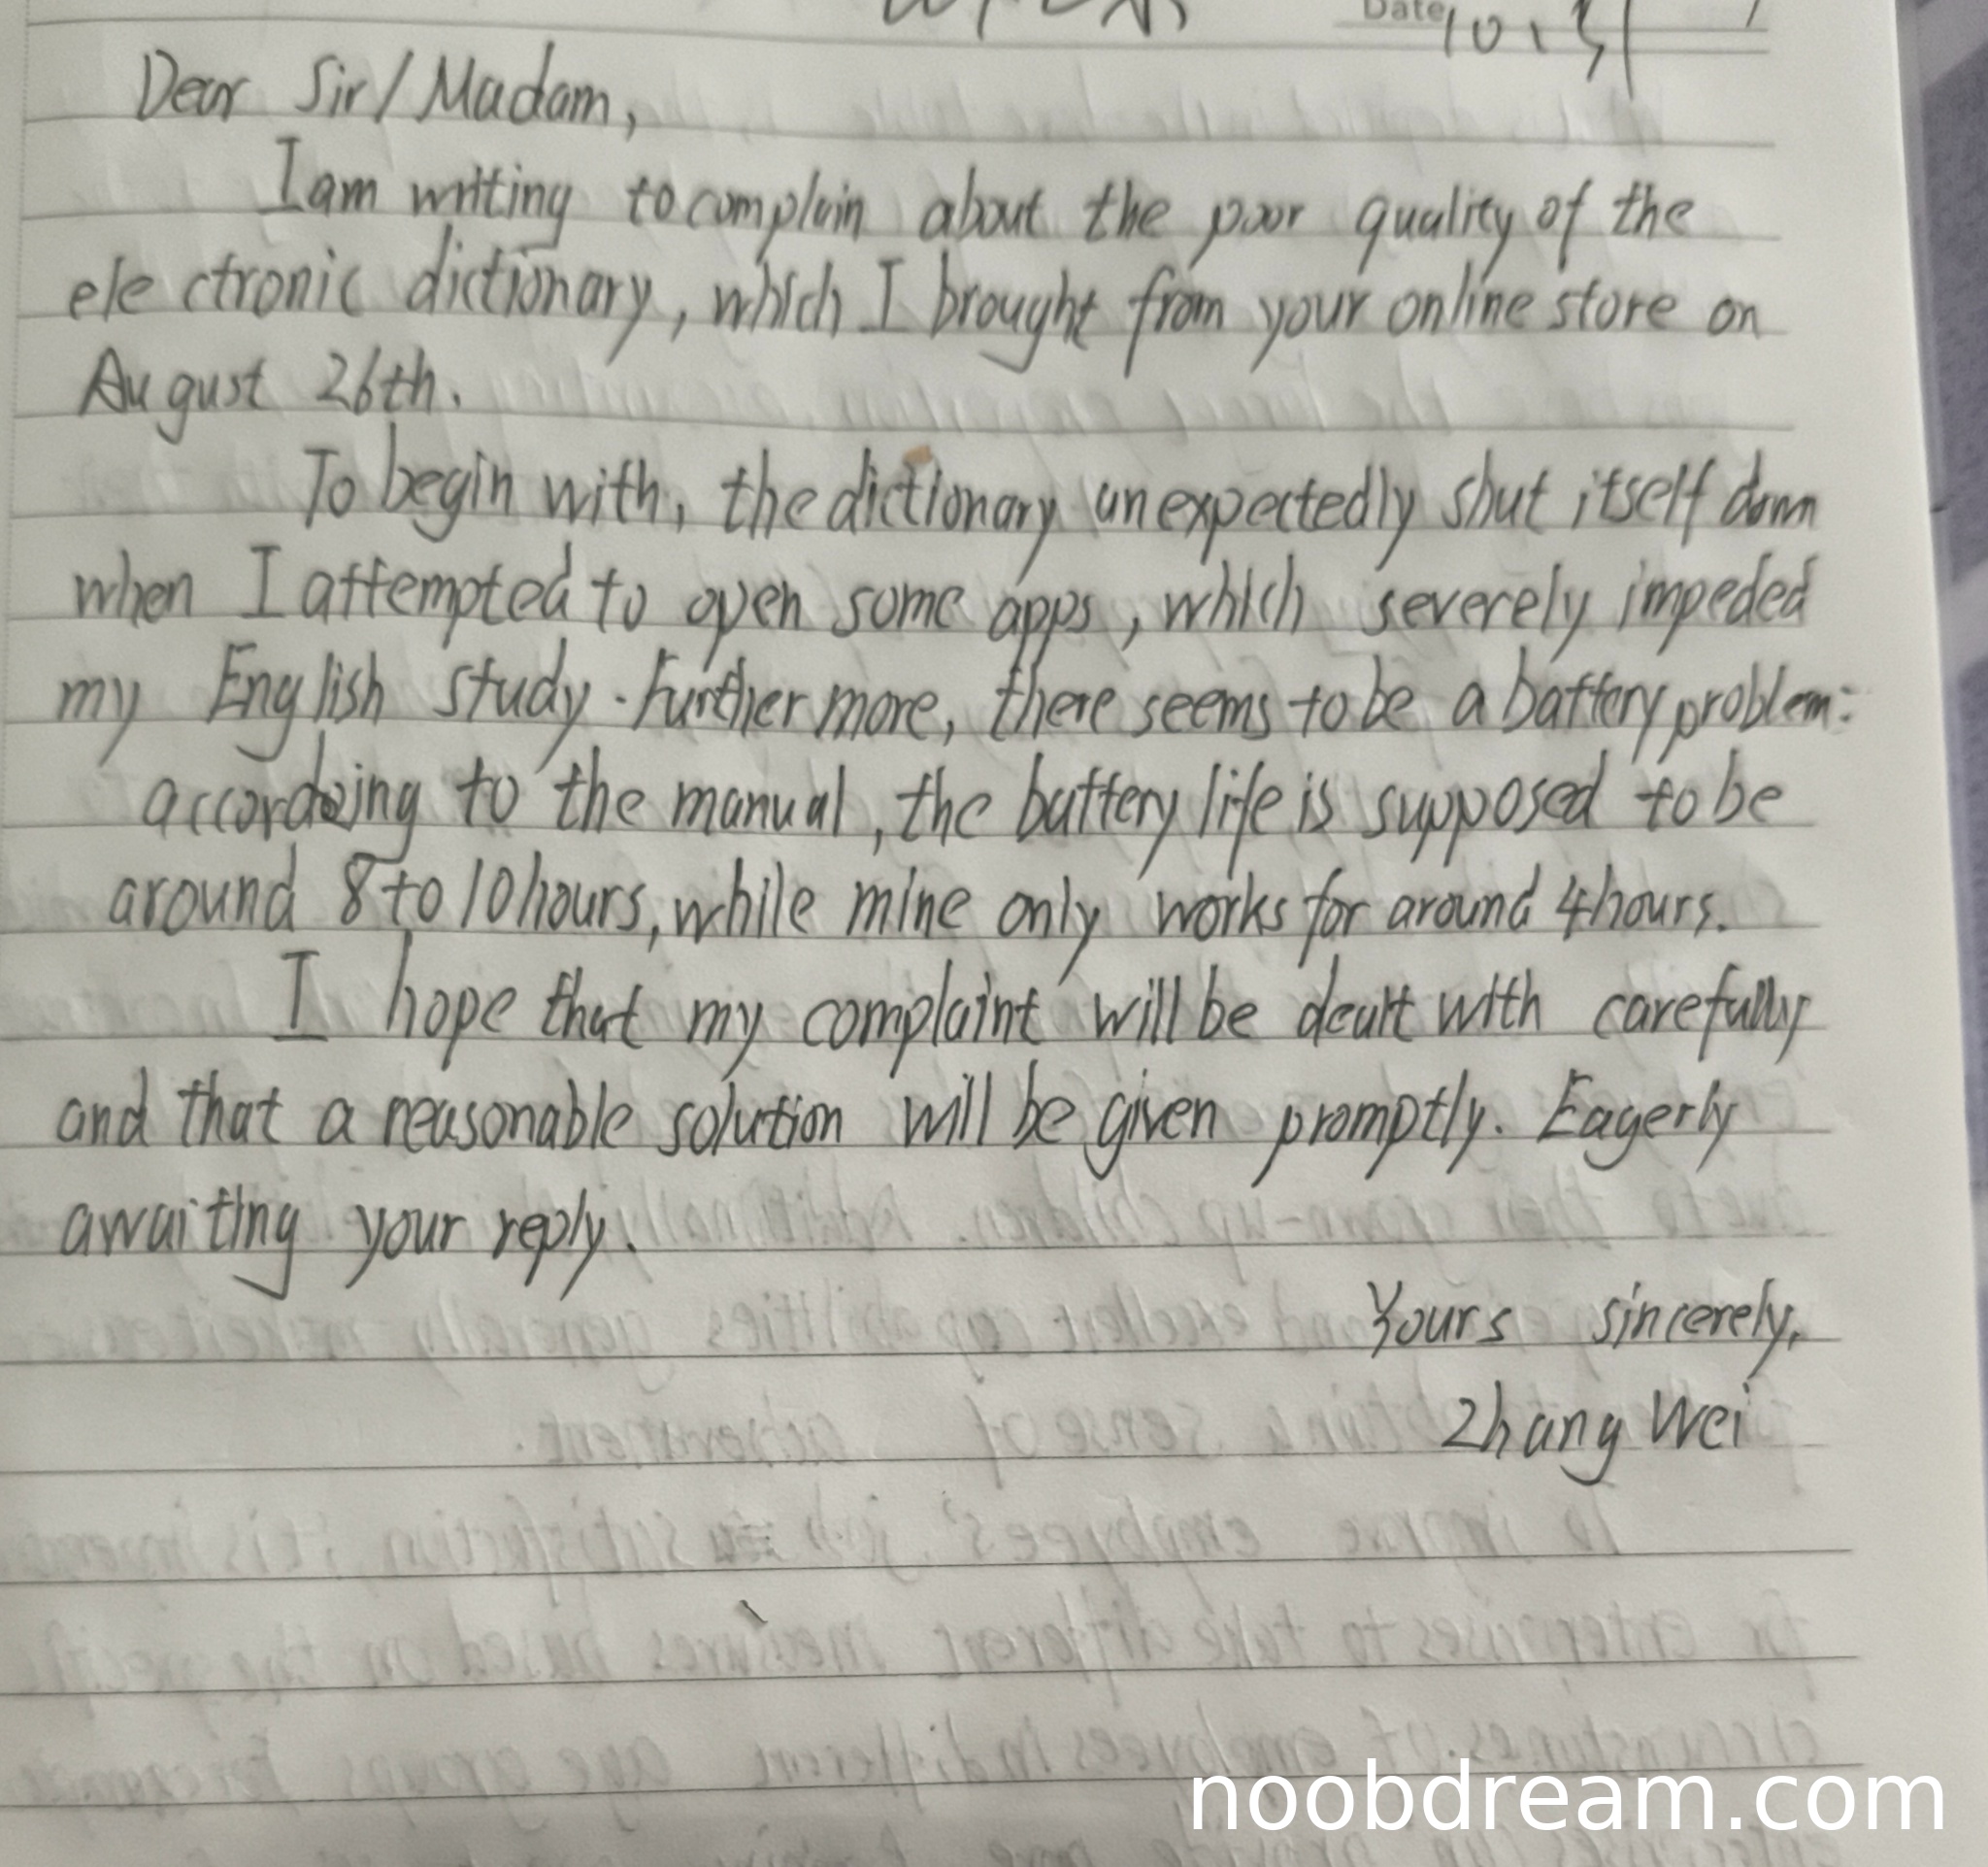 Date 10.31
Dear Sir/Madam,
I am writing to complain about the poor quality of the
electronic dictionary, which I brought from your online store on
August 26th.
To begin with, the dictionary unexpectedly shut itself down
when I attempted to open some apps, which severely impeded
my English study. Furthermore, there seems to be a battery problem:
according to the manual, the battery life is supposed to be
around 8 to 10 hours, while mine only works for around 4 hours.
I hope that my complaint will be dealt with carefully
and that a reasonable solution will be given promptly. Eagerly
awaiting your reply.
Yours sincerely,
Zhang Wei
noobdream.com